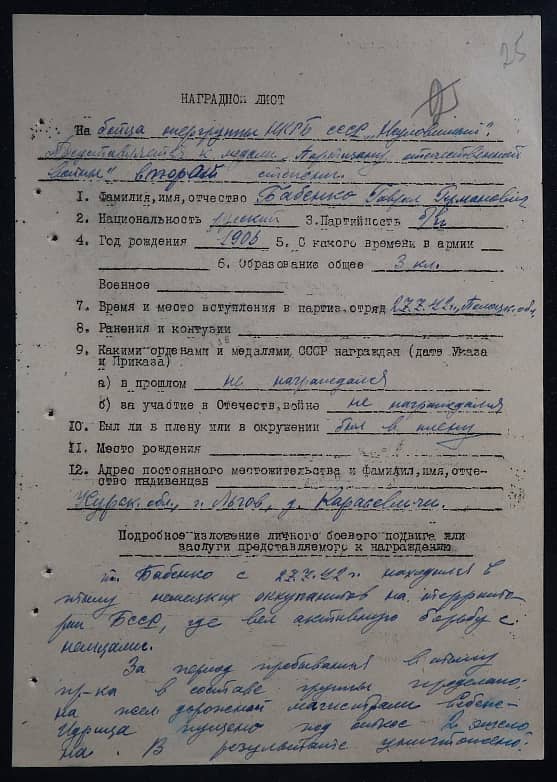 25
НАГРАДНОЙ ЛИСТ
На бойца опергруппы НКГБ СССР „Неуловимый".
Представляется к медали „Партизану отечественной
войны" второй степени.
1. Фамилия,имя,отчество Бабенко Гаврил
2. Национальность русский 3.Партийность б/п
4. Год рождения 1906 5. С какого времени в армии
6. Образование общее 3 кл.
Военное
7. Время и место вступления в партиз.отряд 27.7.42г., Полоцк. обл.
8. Ранения и контузии
9. Какими орденами и медалями, СССР награжден (дата Указа
и Приказа)
а) в прошлом не награждался
б) за участие в Отечеств,войне не награждался
10. Был ли в плену или в окружении был в плену
11. Место рождения
12. Адрес постоянного местожительства и фамилия,имя,отче-
ство иждивенцев
Курск. обл., г. Льгов, д.
Подробное изложение личного боевого подвига или
заслуги представляемого к награждению
т. Бабенко с 27.7.42г. находился в
тылу немецких оккупантов на территo-
рии БССР, где вел активную борьбу с
немцами.
За период пребывания в тылу
пр-ка в составе группы проделано:
на жел. дорожной магистрали Себеж-
Идрица пущено под откос 2 эшело
на. В результате уничтожено: